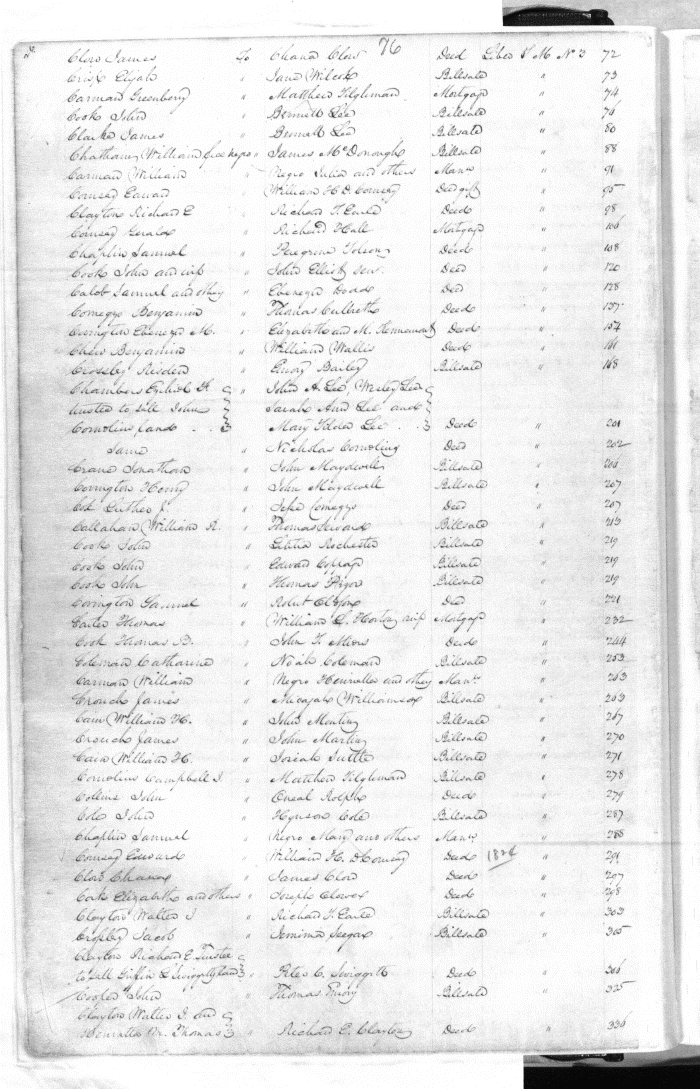 76
Clow James To Chana Clow Deed Liber T M No 3 72
Crisp Elijah " Jane Wilcox Billsale " 73
Carman Greenbery " Matthew Tilghman Mortgage " 74
Cook John " Bennett Lee Billsale " 76
Clarke James " Bennett Lee Billsale " 80
Chatham William free negro " James McDonough Billsale " 88
Carman William " Negro Julia and others Mann " 91
Comsey Edward " William H D Comsey Deed gift " 95
Clayton Richard E " Richard T. Earle Deed " 98
Comsey " Richard Hall Mortgage " 106
Chaplin Samuel " Peregrine Tolson Deed " 108
Cook John and wife " John Elliott senr. Deed " 120
Calob Samuel and others " Ebenezer Deed " 128
Comegys Benjamin " Thomas Culbreth Deed " 137
Covington Ebenezer M. " Elizabeth and M. Deed " 154
Chew Benjamin " William Wallis Deed " 161
Crossley " Emory Bailey Billsale " 168
Chambers Ezekiel F. " John A. Lee Wesley Lee
trustee to sell John Sarah Ann Lee and
Cornelius land Mary Tilden Lee Deed " 201
Same " Nicholas Deed " 202
Crane Jonathan " John Maydwell Billsale " 206
Covington Henry " John Maydwell Billsale " 207
Cox Luther J. " Jesse Comegys Deed " 207
Callahan William R. " Thomas Seward Billsale " 213
Cook John " Letitia Rochester Billsale " 219
Cook John " Edward Coppage Billsale " 219
Cook John " Thomas Pryor Billsale " 219
Covington Samuel " Robert Deed " 221
Carter Thomas " William S. Horton wife Mortgage " 232
Cook Thomas B. " John T. Meers Deed " 244
Coleman Catharine " Noah Coleman Billsale " 253
Carman William " Negro Henrietta and others Mann " 263
Crouch James " Micajah Williamson Billsale " 263
Cain William H. " John Billsale " 267
Crouch James " John Martin Billsale " 270
Cain William H. " Josiah Suttle Billsale " 271
Cornelius Campbell J. " Matthew Tilghman Billsale " 278
Collins John " Oneal Rolph Deed " 279
Cole John " Hynson Cole Billsale " 287
Chaplin Samuel " Negro Mary and others Mann " 288
Comsey Edward " William H. D Comsey Deed 1824 " 291
Clow Chana " James Clow Deed " 297
Cook Elizabeth and others " Joseph Deed " 298
Clayton Walter J " Richard T. Earle Billsale " 303
Cropley Jacob " Jemima Seegar Billsale " 305
Clayton Richard E. Trustee
to sell Griffin C Swiggett land " Peter C. Swiggett Deed " 306
Cooper John " Thomas Emory Billsale " 325
Clayton Walter J. and
Henrietta M. Thomas " Richard E. Clayton Deed " 330